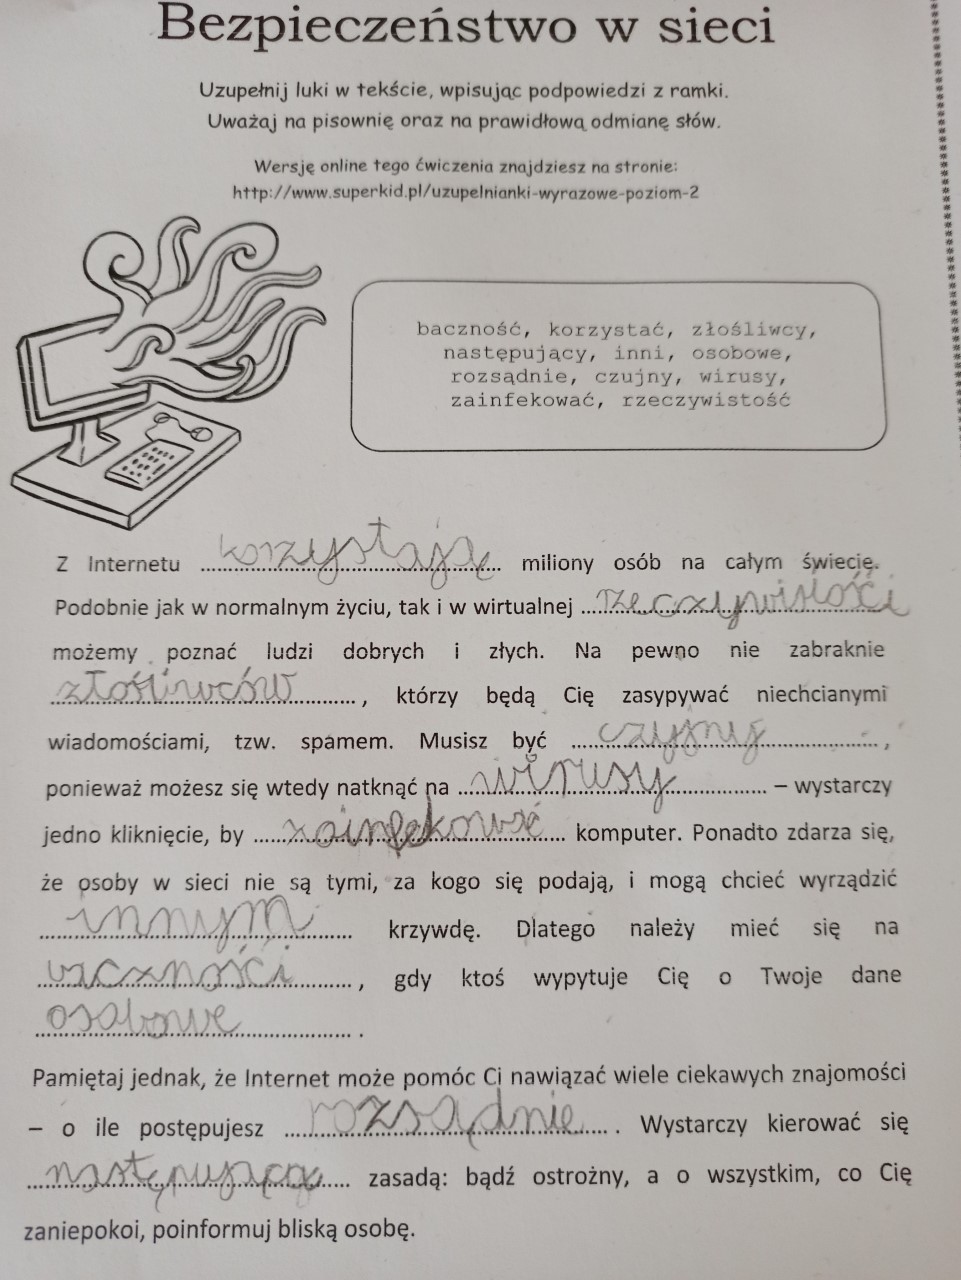 Bezpieczeństwo w sieci
Uzupełnij luki w tekście, wpisując podpowiedzi z ramki.
Uważaj na pisownię oraz na prawidłową odmianę słów.
Wersję online tego ćwiczenia znajdziesz na stronie:
http://www.superkid.pl/uzupelnianki-wyrazowe-poziom-2
baczność, korzystać, złośliwcy,
następujący, inni, osobowe,
rozsądnie, czujny, wirusy,
zainfekować, rzeczywistość
Z Internetu korzystają miliony osób na całym świecie.
Podobnie jak w normalnym życiu, tak i w wirtualnej rzeczywistości
możemy poznać ludzi dobrych i złych. Na pewno nie zabraknie
złośliwców, którzy będą Cię zasypywać niechcianymi
wiadomościami, tzw. spamem. Musisz być czujny,
ponieważ możesz się wtedy natknąć na wirusy – wystarczy
jedno kliknięcie, by zainfekować komputer. Ponadto zdarza się,
że osoby w sieci nie są tymi, za kogo się podają, i mogą chcieć wyrządzić
innym krzywdę. Dlatego należy mieć się na
baczności, gdy ktoś wypytuje Cię o Twoje dane
osobowe.
Pamiętaj jednak, że Internet może pomóc Ci nawiązać wiele ciekawych znajomości
– o ile postępujesz rozsądnie. Wystarczy kierować się
następującą zasadą: bądź ostrożny, a o wszystkim, co Cię
zaniepokoi, poinformuj bliską osobę.